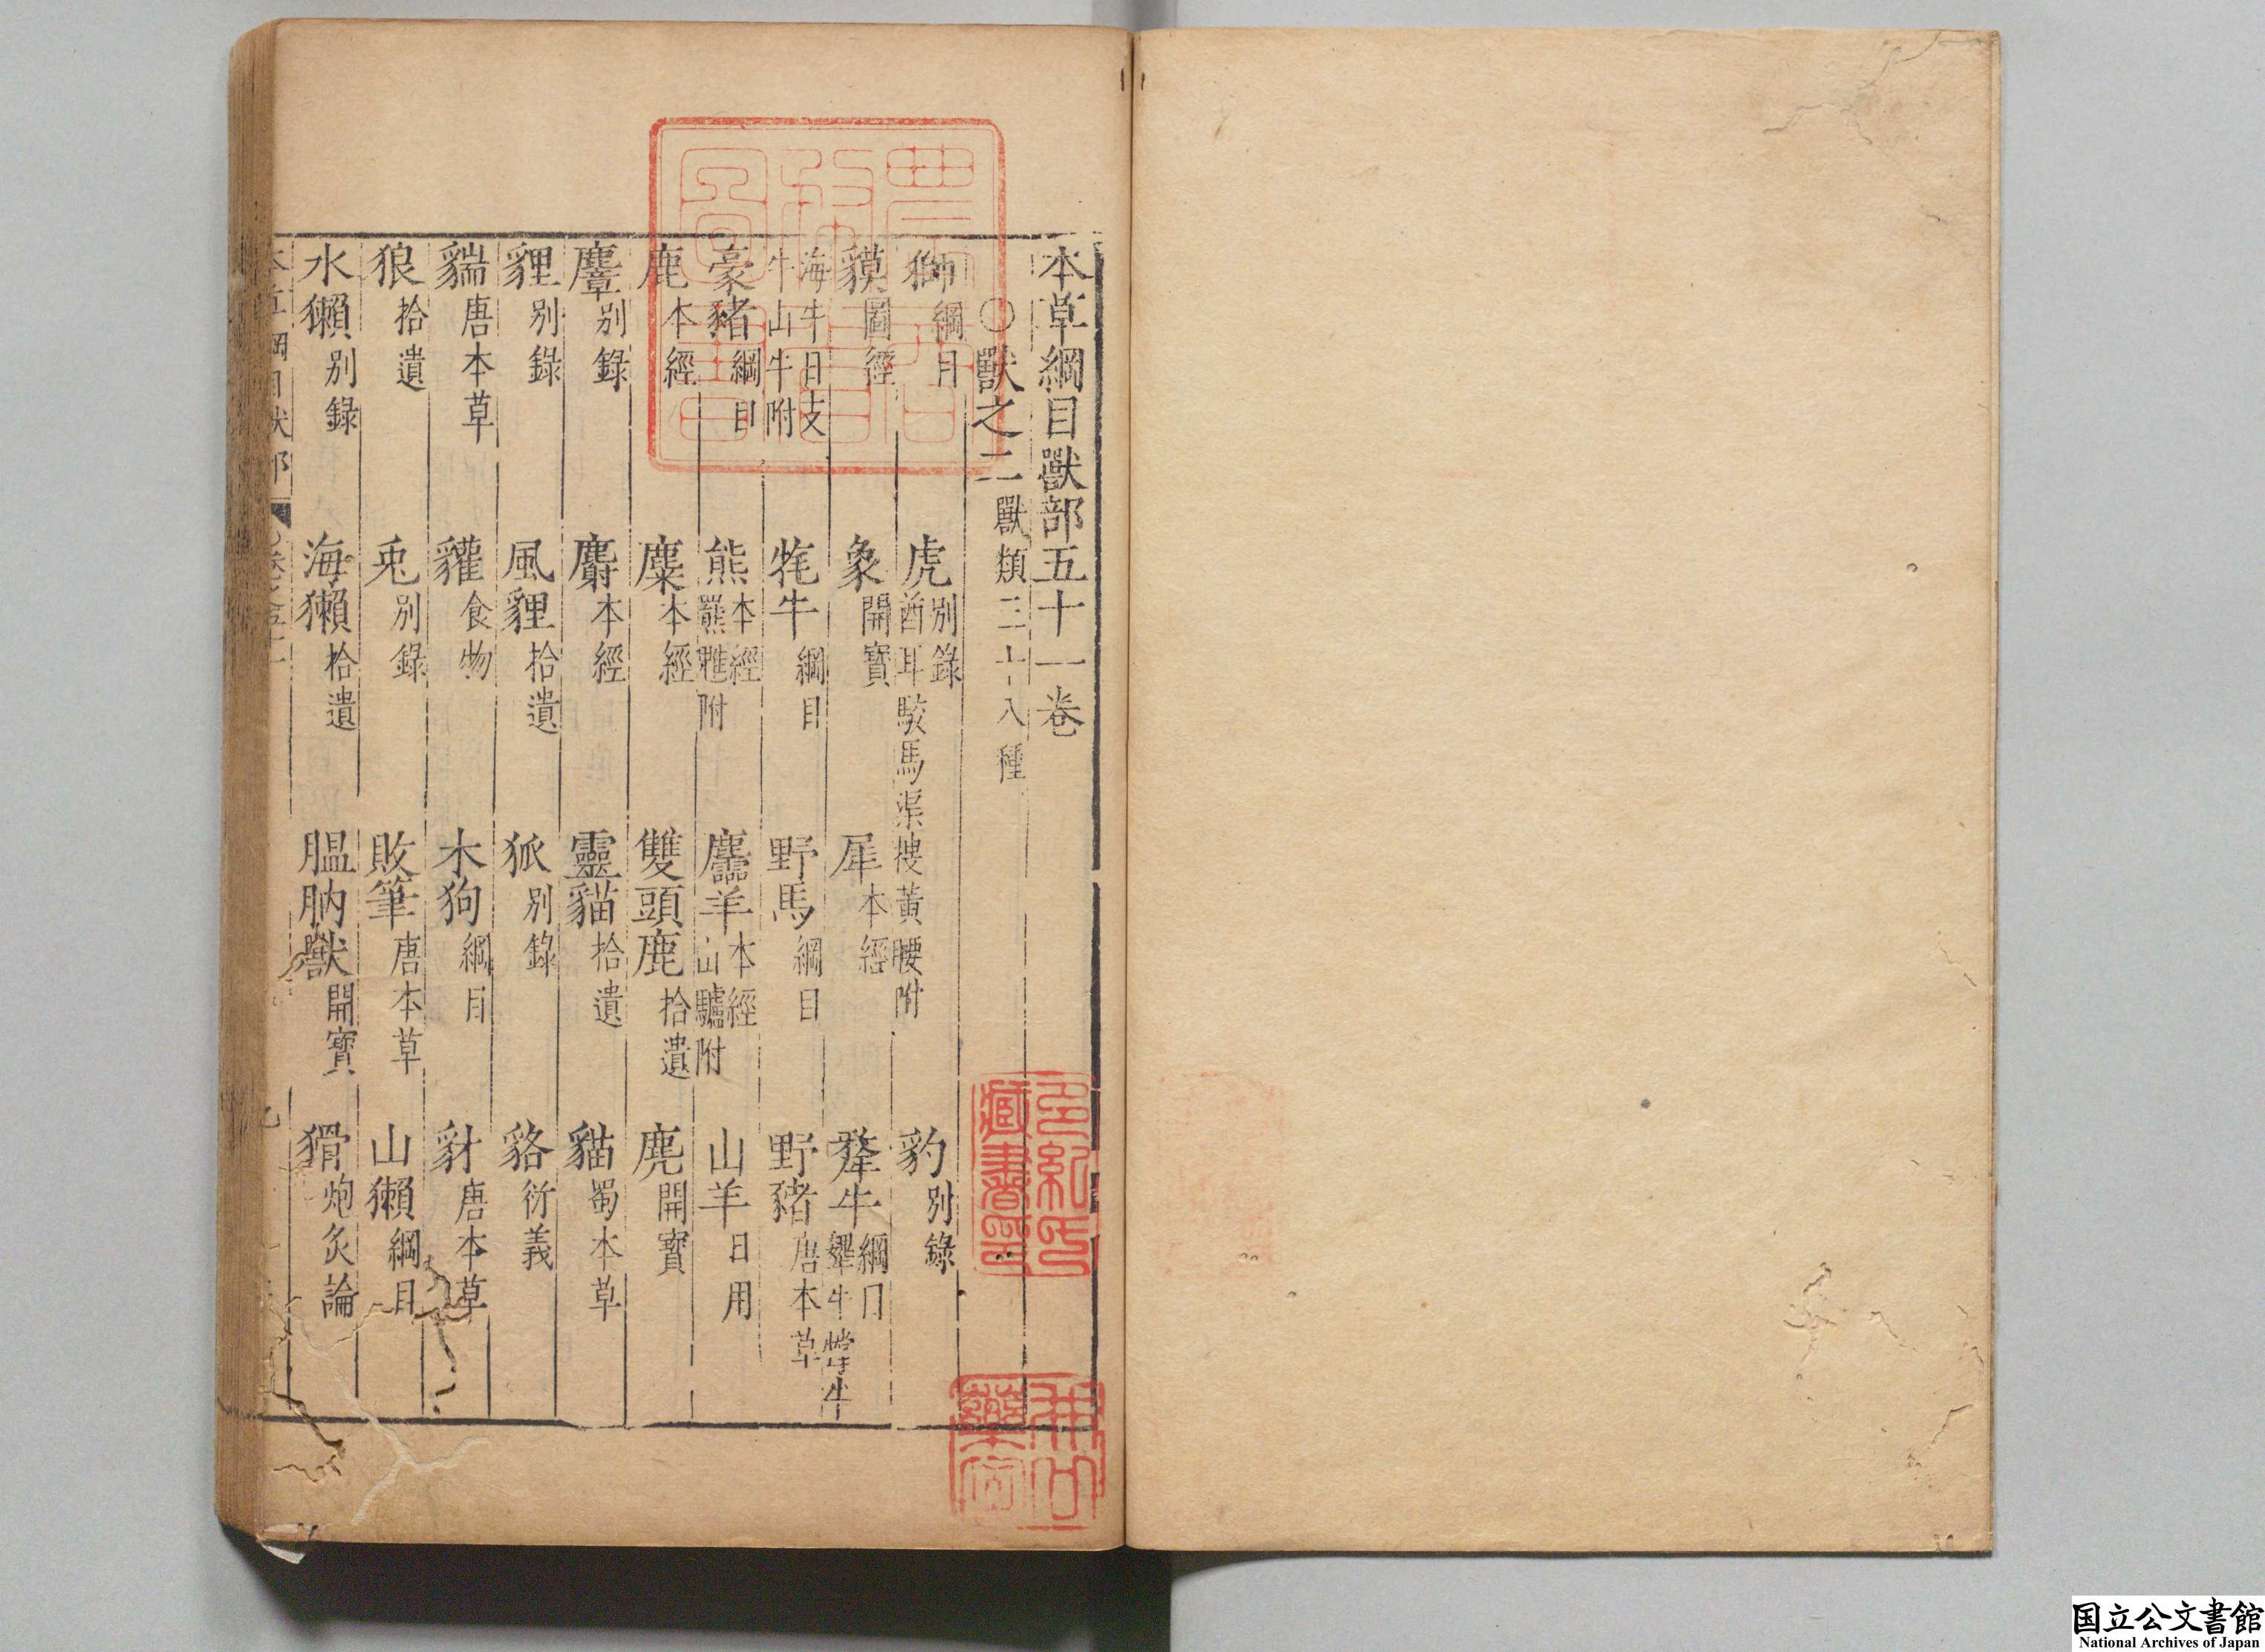 本草綱目獸部五十一卷
〇獸之二獸類三十八種
獅綱目 虎別錄 酋耳駮馬渠搜黃腰附 豹別錄
貘圖經 象開寶 犀本經 犛牛綱目 犩牛㹈牛
海牛月支牛山牛附 㹀牛綱目 野馬綱目 野豬唐本草
豪豬綱目 熊本經 羆魋附 麢羊本經 山驢附 山羊日用
鹿本經 麋本經 雙頭鹿拾遺 麂開寶
麞別錄 麝本經 靈貓拾遺 貓蜀本草
貍別錄 風貍拾遺 狐別錄 貉衍義
貒唐本草 貛食物 木狗綱目 豺唐本草
狼拾遺 兎別錄 敗筆唐本草 山獺綱目
水獺別錄 海獺拾遺 膃肭獸開寶 猾炮炙論
藏書印
国立公文書館
National Archives of Japan